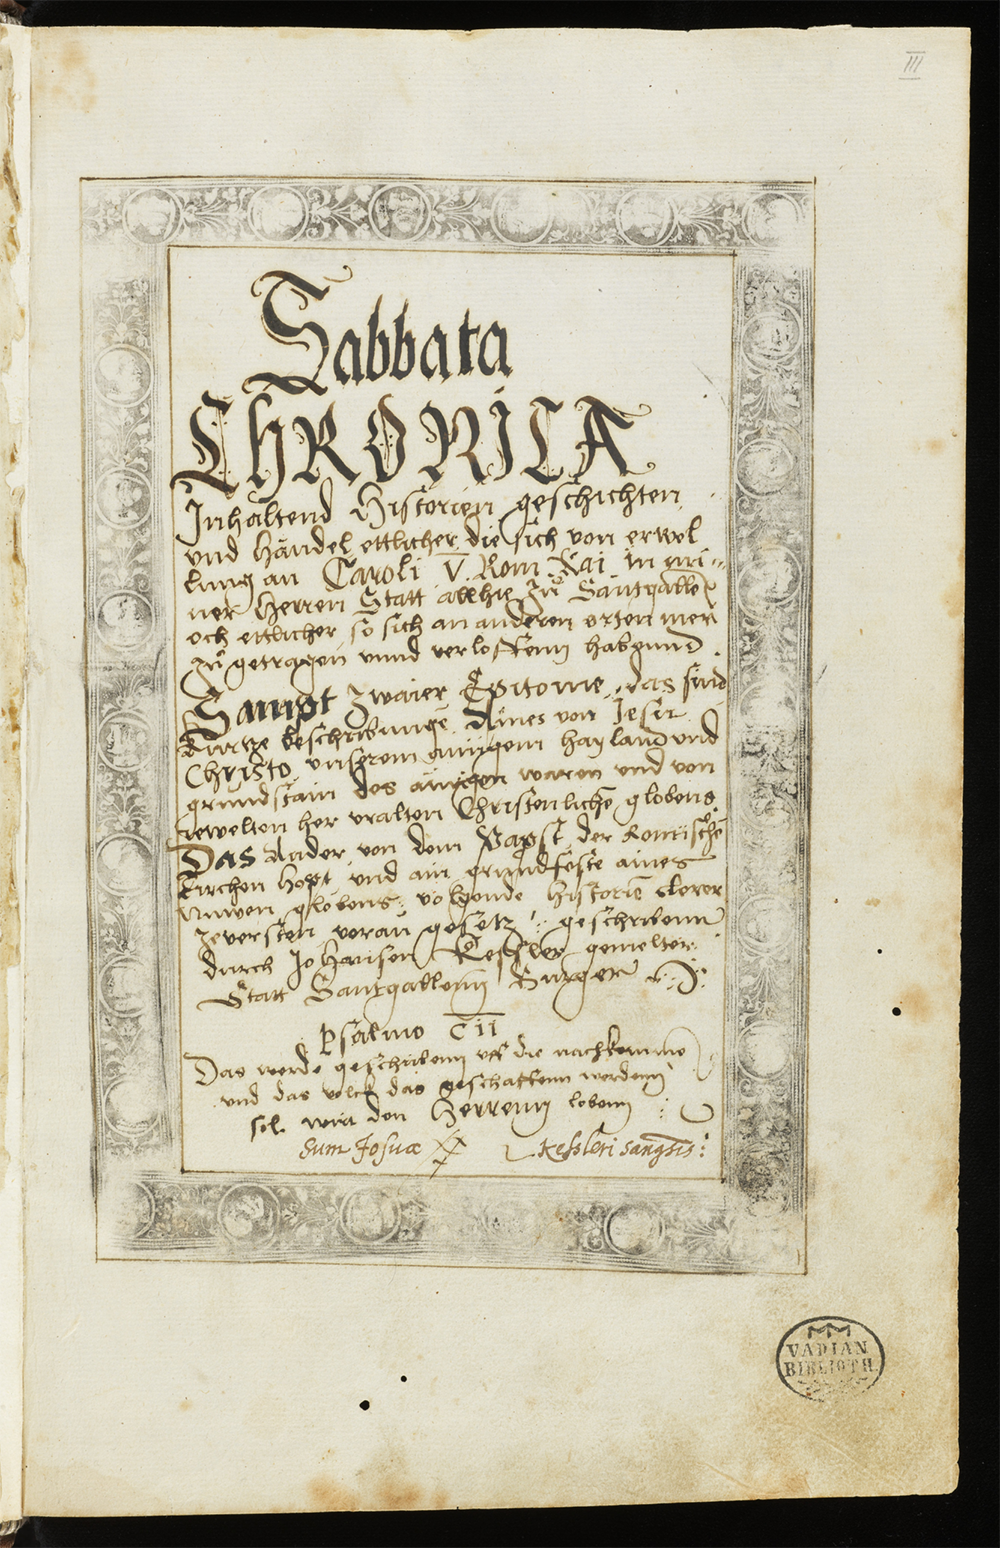 III
Sabbata
CHRONICA
Inhaltend Historien geschichten
vnd händel ettlicher, die sich von erwel
lung an Caroli V. Rom. Kai. in mi-
ner Herren Statt allhie zů Santgallen
och ettlicher so sich an anderen orten mer
zů getragen vnnd verloffenn habennd.
Sampt zwaier Epitome, das sind
kurtze beschribunge. Aines von Jesu
Christo, vnserem ainigem hayland vnd
grundstain des ainigen waren vnd von
iewelten her vralten Christenliche globens
Das Ander, von dem Papst, der Römischē
kirchen hopt, vnd ain grundfeste aines
nuwen globens; volgende historiē clerer
zeversten, voran gesetz: geschribenn
durch Johansen Kessler gemelter
Statt Santgallenn Burger
Psalmo CII
Das werde geschribenn vff die nachkommē
vnd das volck das geschaffenn werdenn
sol wirt den Herrenn lobenn :
Sum Josuæ Kessleri Sang:
VADIAN
BIBLIOTH.